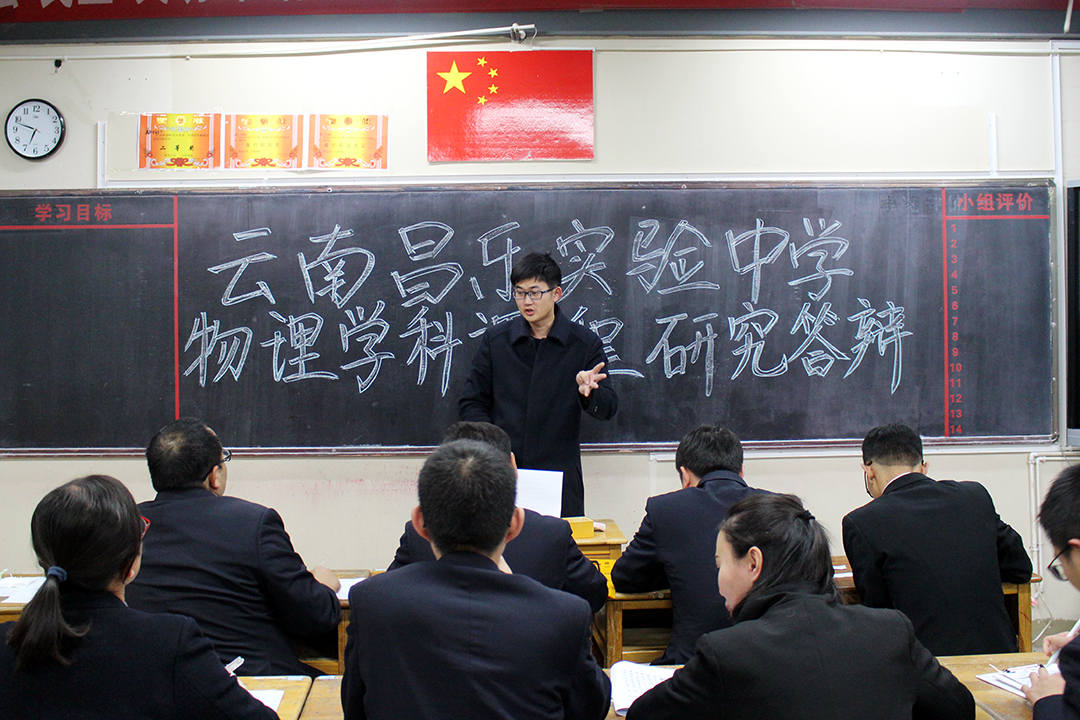 二等奖
学习目标
小组评价
云南昌乐实验中学
物理学科课程研究答辩
1
2
3
4
5
6
7
8
9
10
11
12
13
14